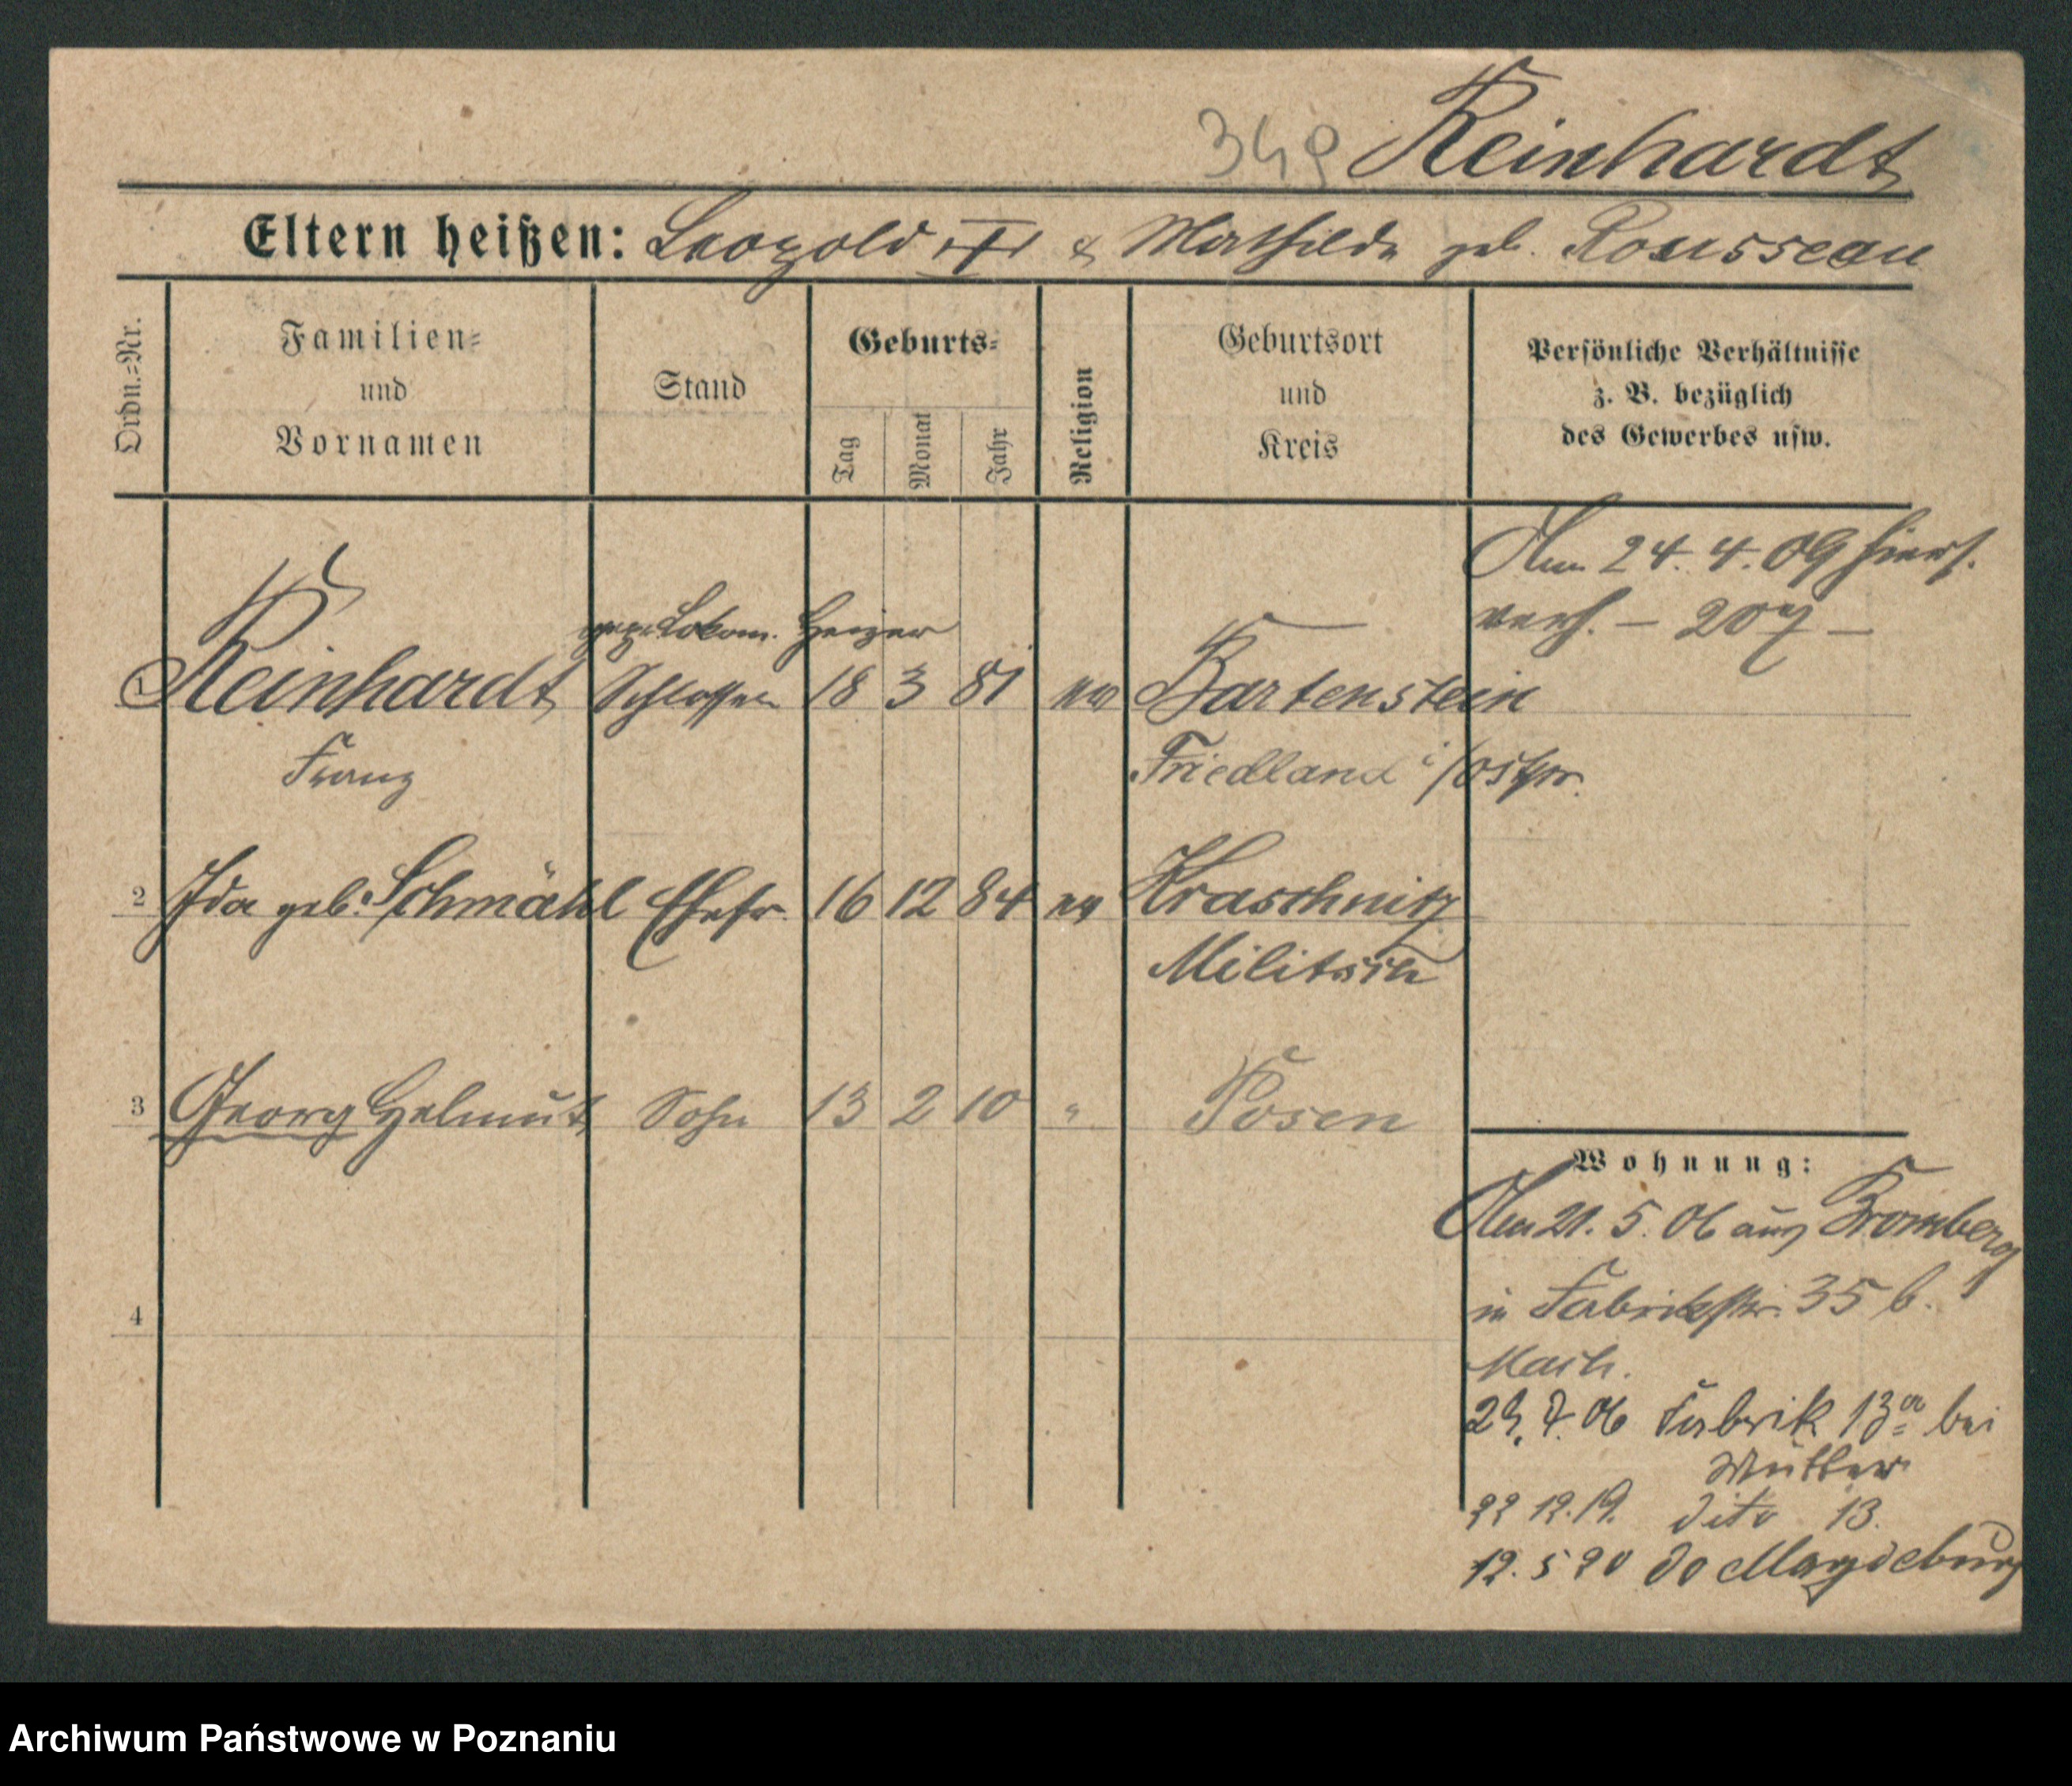 349 Reinhardt
Eltern heißen: Leopold & Mathilde geb. Rousseau
Ordn.-Nr.
Familien-
und
Vornamen
Stand
Geburts-
Tag
Monat
Jahr
Religion
Geburtsort
und
Kreis
Persönliche Verhältnisse
z. B. bezüglich
des Gewerbes usw.
Am 24. 4. 09 hiers.
verh. – 207 –
gepr. Lokom. Heizer
1 Reinhardt Schlosser 18 3 81 ev Bartenstein
Franz Friedland i/Ostpr.
2 Ida geb. Schmähl Ehefr. 16 12 84 ev Kraschnitz
Militsch
3 Georg Helmut Sohn 13 2 10 " Posen
4
Wohnung:
Am 21. 5. 06 aus Bromberg
in Fabrikstr. 35 b.
23. 7. 06 Fabrik 13a bei
Mutter
22 12. 19. dito 13.
12. 5 20 do Magdeburg
Archiwum Państwowe w Poznaniu